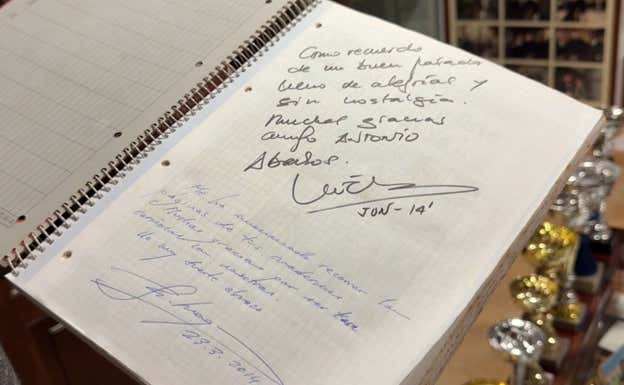 Como recuerdo
de un buen pasado
lleno de alegrías y
sin nostalgia.
Muchas gracias
amigo ANTONIO
Abalos.
JUN-14'
Me ha emocionado recorrer las
páginas de tus
Muchas gracias por
con nosotros
Un muy fuerte abrazo
23.3.2014